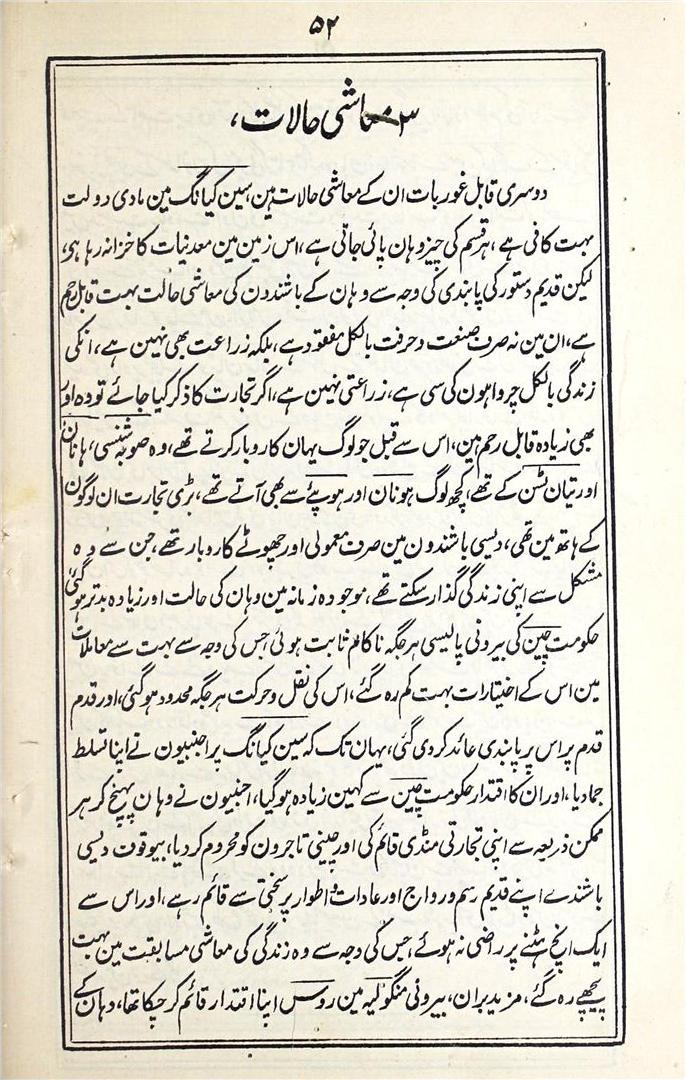 ۵۲
۳۔ معاشی حالات،
دوسری قابل غور بات ان کے معاشی حالات ہین، سین کیانگ مین مادی دولت
بہت کافی ہے، ہر قسم کی چیز وہان پائی جاتی ہے، اس زمین مین معدنیات کا خزانہ رہا ہی،
لیکن قدیم دستور کی پابندی کی وجہ سے وہان کے باشندون کی معاشی حالت بہت قابل رحم
ہے، ان مین نہ صرف صنعت و حرفت بالکل مفقود ہے، بلکہ زراعت بھی نہین ہے، انکی
زندگی بالکل چرواہون کی سی ہے، زراعتی نہین ہے، اگر تجارت کا ذکر کیا جائے تو وہ اور
بھی زیادہ قابل رحم ہین، اس سے قبل جو لوگ یہان کاروبار کرتے تھے، وہ صوبہ شنسی، ہانان
اور تیان ٹسن کے تھے، کچھ لوگ ہونان اور ہوپئے سے بھی آتے تھے، بڑی تجارت ان لوگون
کے ہاتھ مین تھی، دیسی باشندون مین صرف معمولی اور چھوٹے کاروبار تھے، جن سے وہ
مشکل سے اپنی زندگی گذار سکتے تھے، موجودہ زمانہ مین وہان کی حالت اور زیادہ بدتر ہو گئی
حکومت چین کی بیرونی پالیسی ہر جگہ ناکام ثابت ہوئی جس کی وجہ سے بہت سے معاملات
مین اس کے اختیارات بہت کم رہ گئے، اس کی نقل و حرکت ہر جگہ محدود ہو گئی، اور قدم
قدم پر اس پر پابندی عائد کر دی گئی، یہان تک کہ سین کیانگ پر اجنبیون نے اپنا تسلط
جما دیا، اور ان کا اقتدار حکومت چین سے کہین زیادہ ہو گیا، اجنبیون نے وہان پہنچ کر ہر
ممکن ذریعہ سے اپنی تجارتی منڈی قائم کی اور چینی تاجرون کو محروم کر دیا، بیوقوف دیسی
باشندے اپنے قدیم رسم و رواج اور عادات و اطوار پر سختی سے قائم رہے، اور اس سے
ایک انچ ہٹنے پر راضی نہ ہوئے، جس کی وجہ سے وہ زندگی کی معاشی مسابقت مین بہت
پیچھے رہ گئے، مزید بران، بیرونی منگولیہ مین روس اپنا اقتدار قائم کر چکا تھا، وہان کے